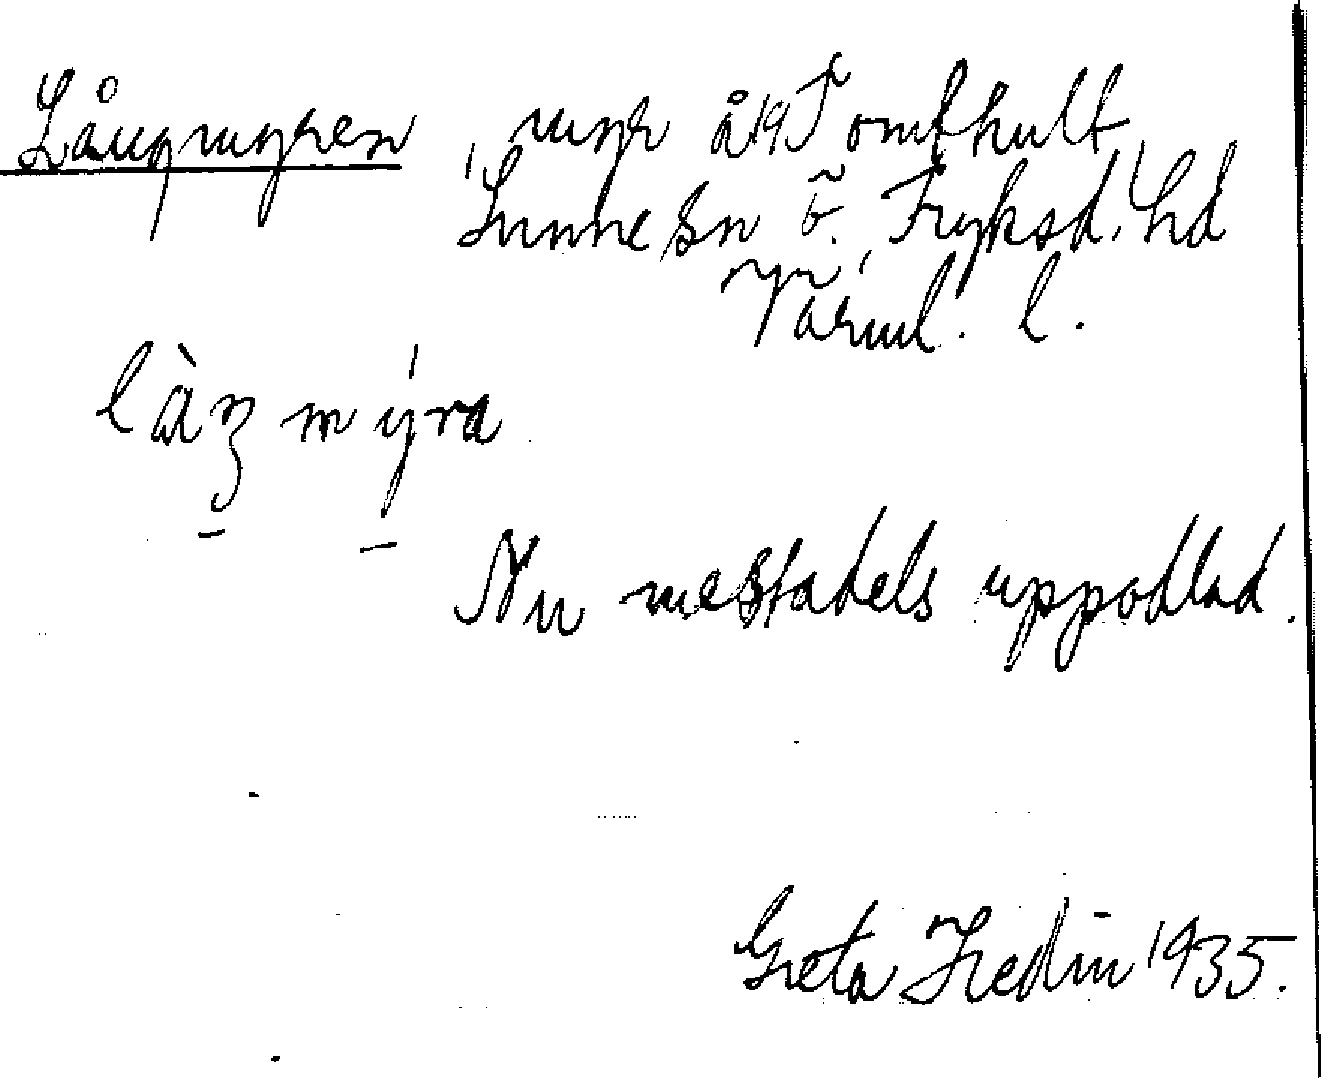 Långmyren, myr å 19 Tomthult,
Sunne sn Ö. Fryksd. hd
Värml. l.
làŋmýra
Nu mestadels uppodlad.
Greta Hedin 1935.